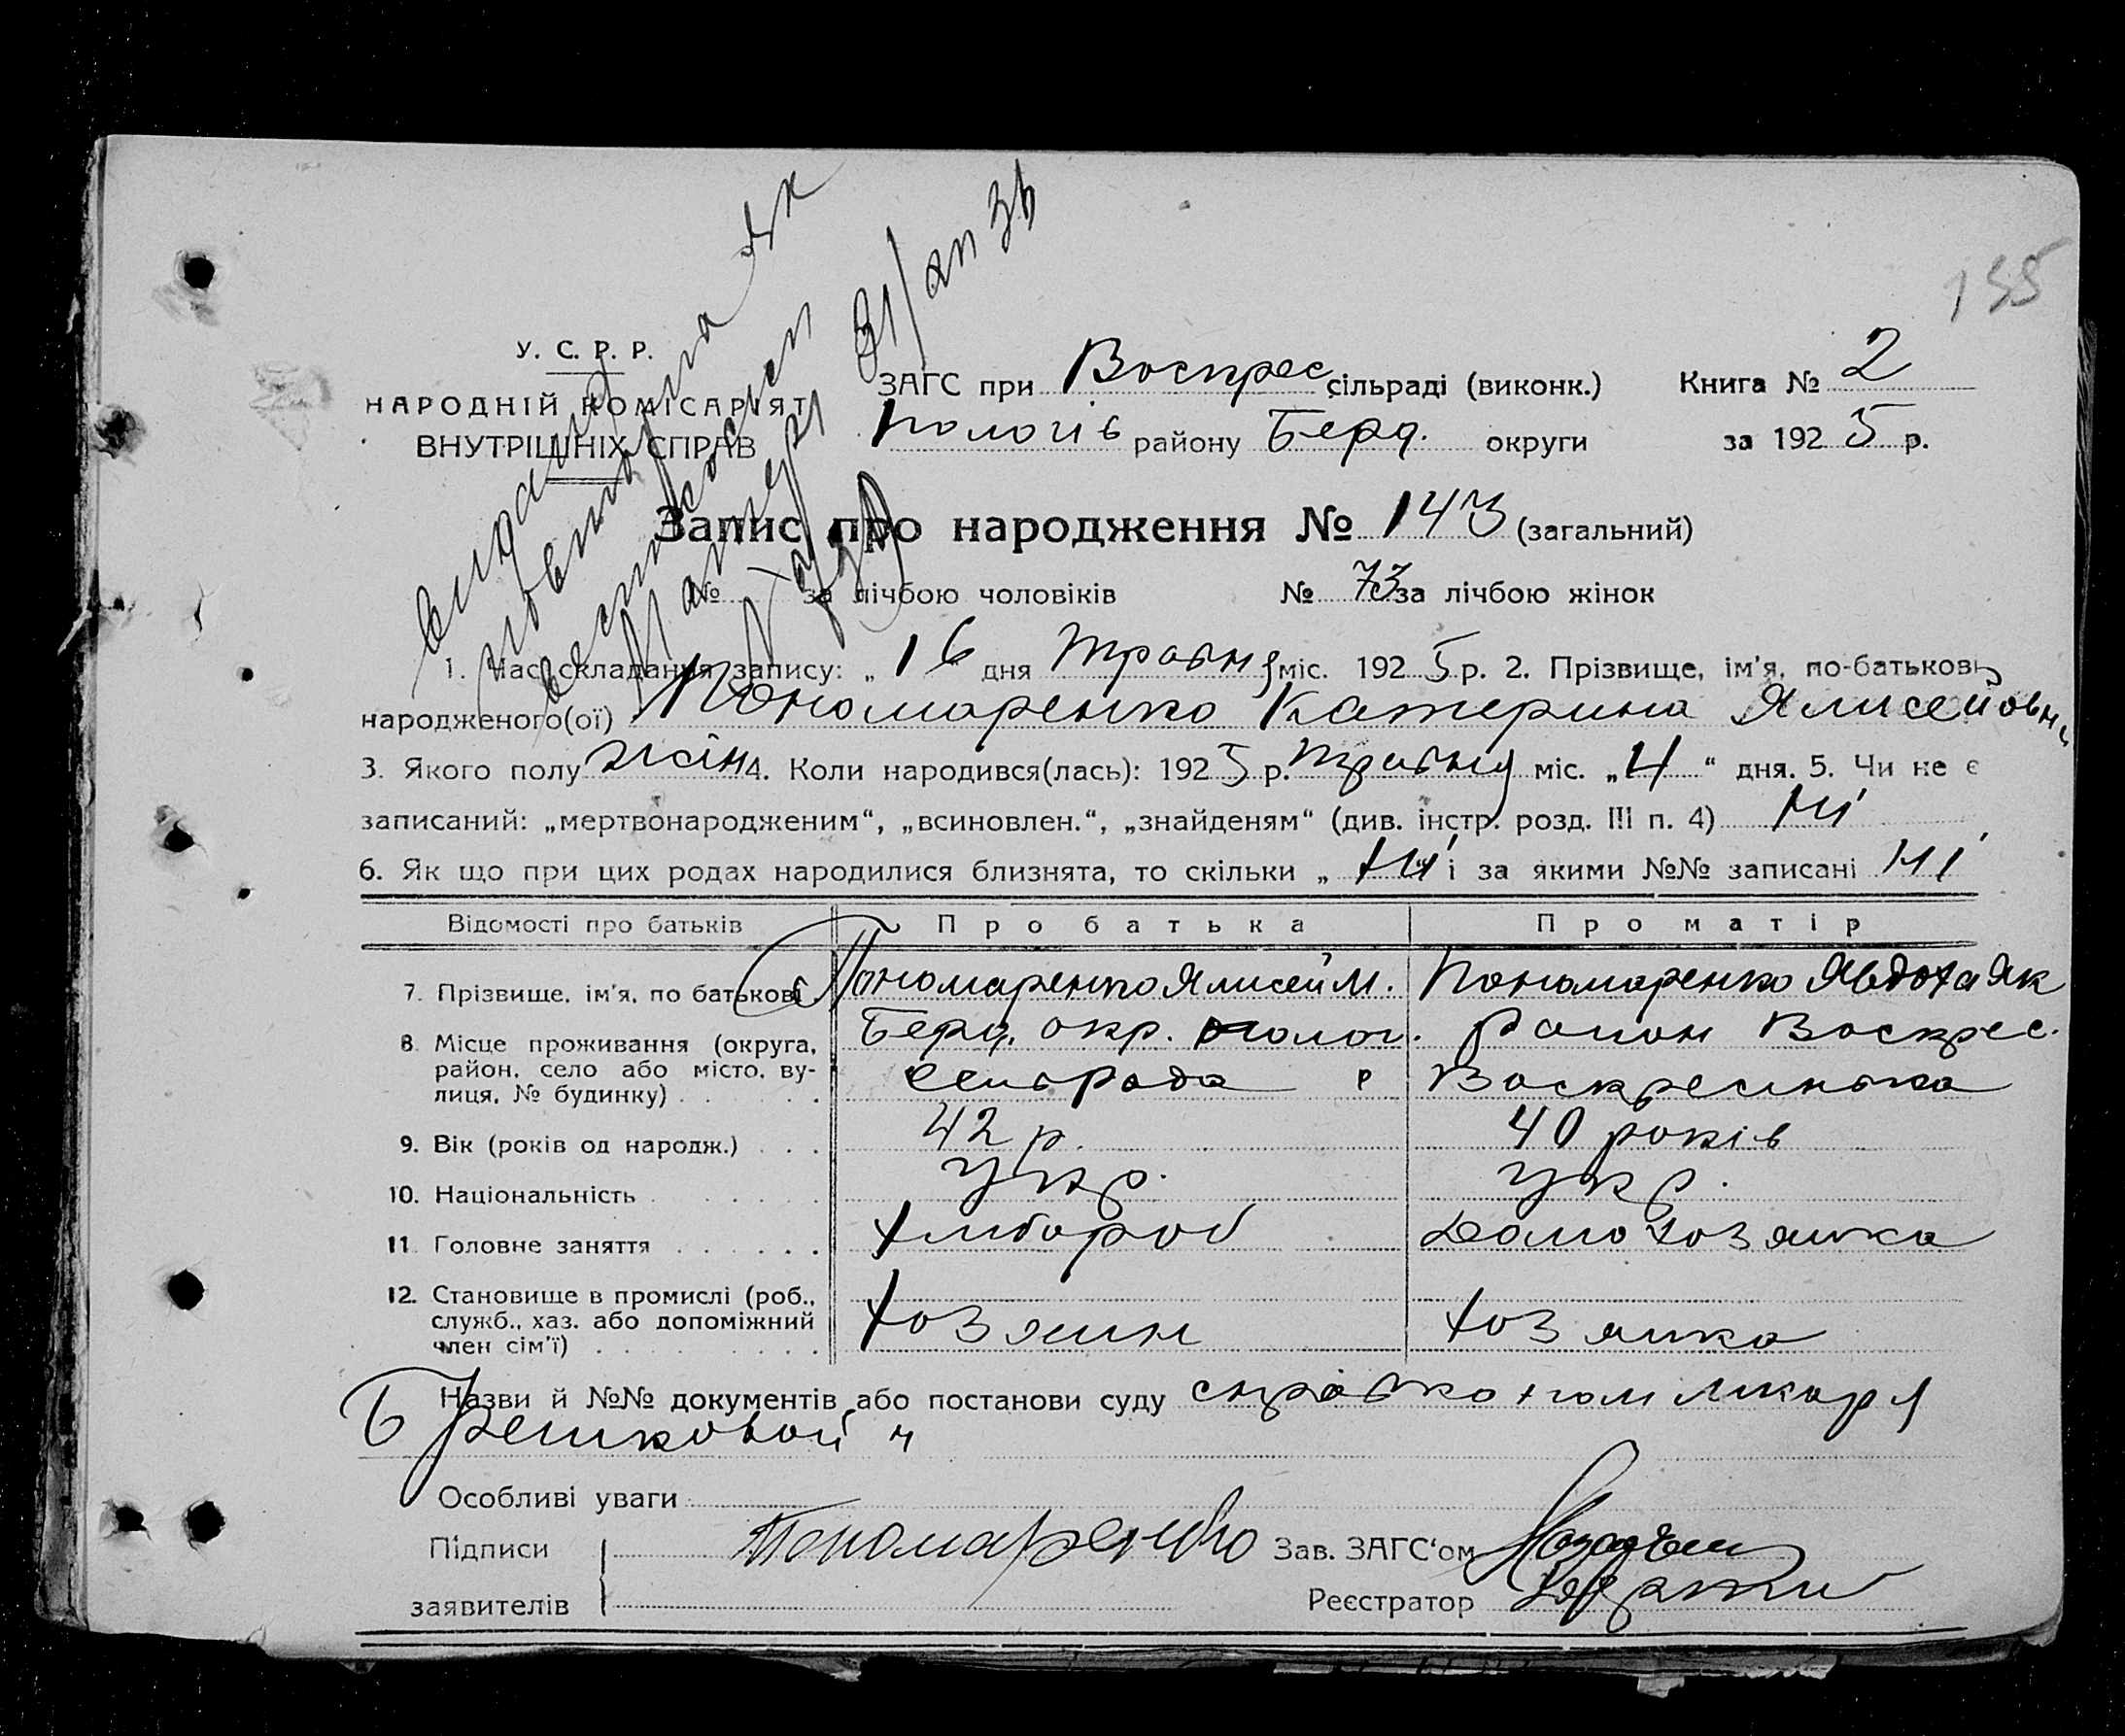 155
У. С. Р. Р.
НАРОДНІЙ КОМІСАРІЯТ
ВНУТРІШНІХ СПРАВ
31/ап 36
ЗАГС при Воскрес сільраді (виконк.) Книга № 2
Пологів району Берд. округи за 1925 р.
Запис про народження № 143 (загальний)
№ за лічбою чоловіків № 73 за лічбою жінок
1. Час складання запису: „16 дня травня міс. 1925 р. 2. Прізвище, ім'я, по-батькові
народженого(ої) Пономаренко Катерина Ялисейовн
3. Якого полу жін 4. Коли народився(лась): 1925 р. травня міс. „4“ дня. 5. Чи не є
записаний: „мертвонародженим“, „всиновлен.“, „знайденям“ (див. інстр. розд. III п. 4) ні
6. Як що при цих родах народилися близнята, то скільки „ ні і за якими №№ записані ні
Відомості про батьків Про батька Про матір
7. Прізвище, ім'я, по батькові Пономаренко Ялисей М. Пономаренко Явдоха Як
8. Місце проживання (округа, район, село або місто, вулиця, № будинку) Берд. окр. полог. район Воскрес.
сельрада Воскресинька
9. Вік (років од народж.) 42 р. 40 років
10. Національність укр. укр.
11. Головне заняття хлібороб домохозяйка
12. Становище в промислі (роб., служб., хаз. або допоміжний член сім'ї) хозяин хозяйка
Назви й №№ документів або постанови суду справка ликаря
Особливі уваги
Підписи Пономаренко Зав. ЗАГС'ом
заявителів Реєстратор